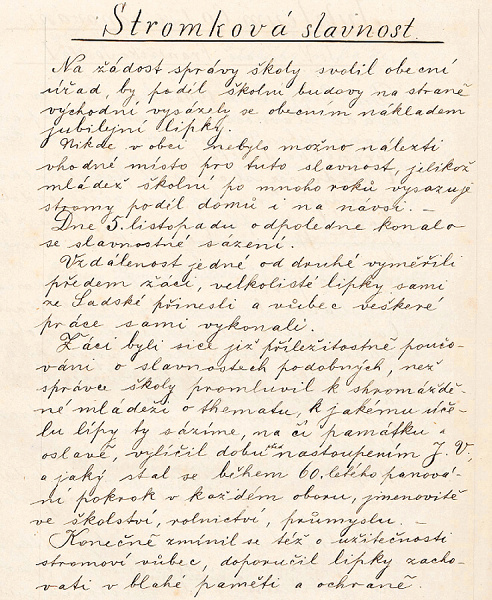 Stromková slavnost.
Na žádost správy školy svolil obecní
úřad, by podél školní budovy na straně
východní vysázely se obecním nákladem
jubilejní lipky.
Nikde v obci nebylo možno nalézti
vhodné místo pro tuto slavnost, jelikož
mládež školní po mnoho roků vysazuje
stromy podíl domů i na návsi. –
Dne 5. listopadu odpoledne konalo
se slavnostné sázení.
Vzdálenost jedné od druhé vyměřili
předem žáci, velkolisté lipky sami
ze Sadské přinesli a vůbec veškeré
práce sami vykonali.
Žáci byli sice již příležitostně poučo-
váni o slavnostech podobných, než
správce školy promluvil k shromáždě-
né mládeži o thematu, k jakému úče-
lu lípy ty sázíme, na čí památku a
oslavě, vylíčil dobu před nastoupením J. V.,
a jaký stal se během 60.letého panová-
ní pokrok v každém oboru, jmenovitě
ve školství, rolnictví, průmyslu. –
Konečně zmínil se též o užitečnosti
stromoví vůbec, doporučil lipky zacho-
vati v blahé paměti a ochraně.